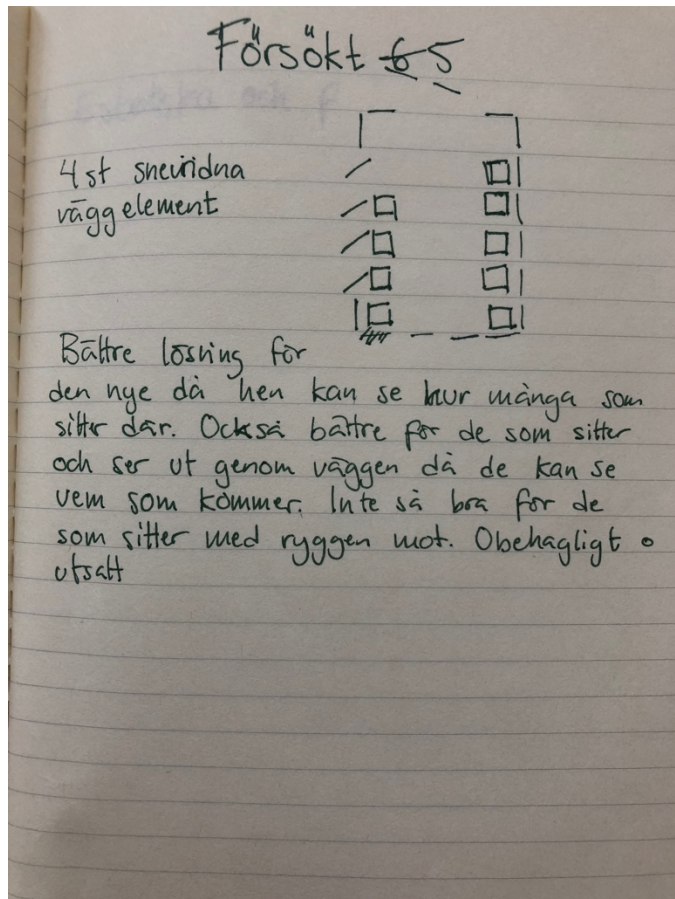 Försökt 5
4 st snevridna
väggelement
Bättre lösning för
den nye då hen kan se hur många som
sitter där. Också bättre för de som sitter
och ser ut genom väggen då de kan se
vem som kommer. Inte så bra för de
som sitter med ryggen mot. Obehagligt o
utsatt